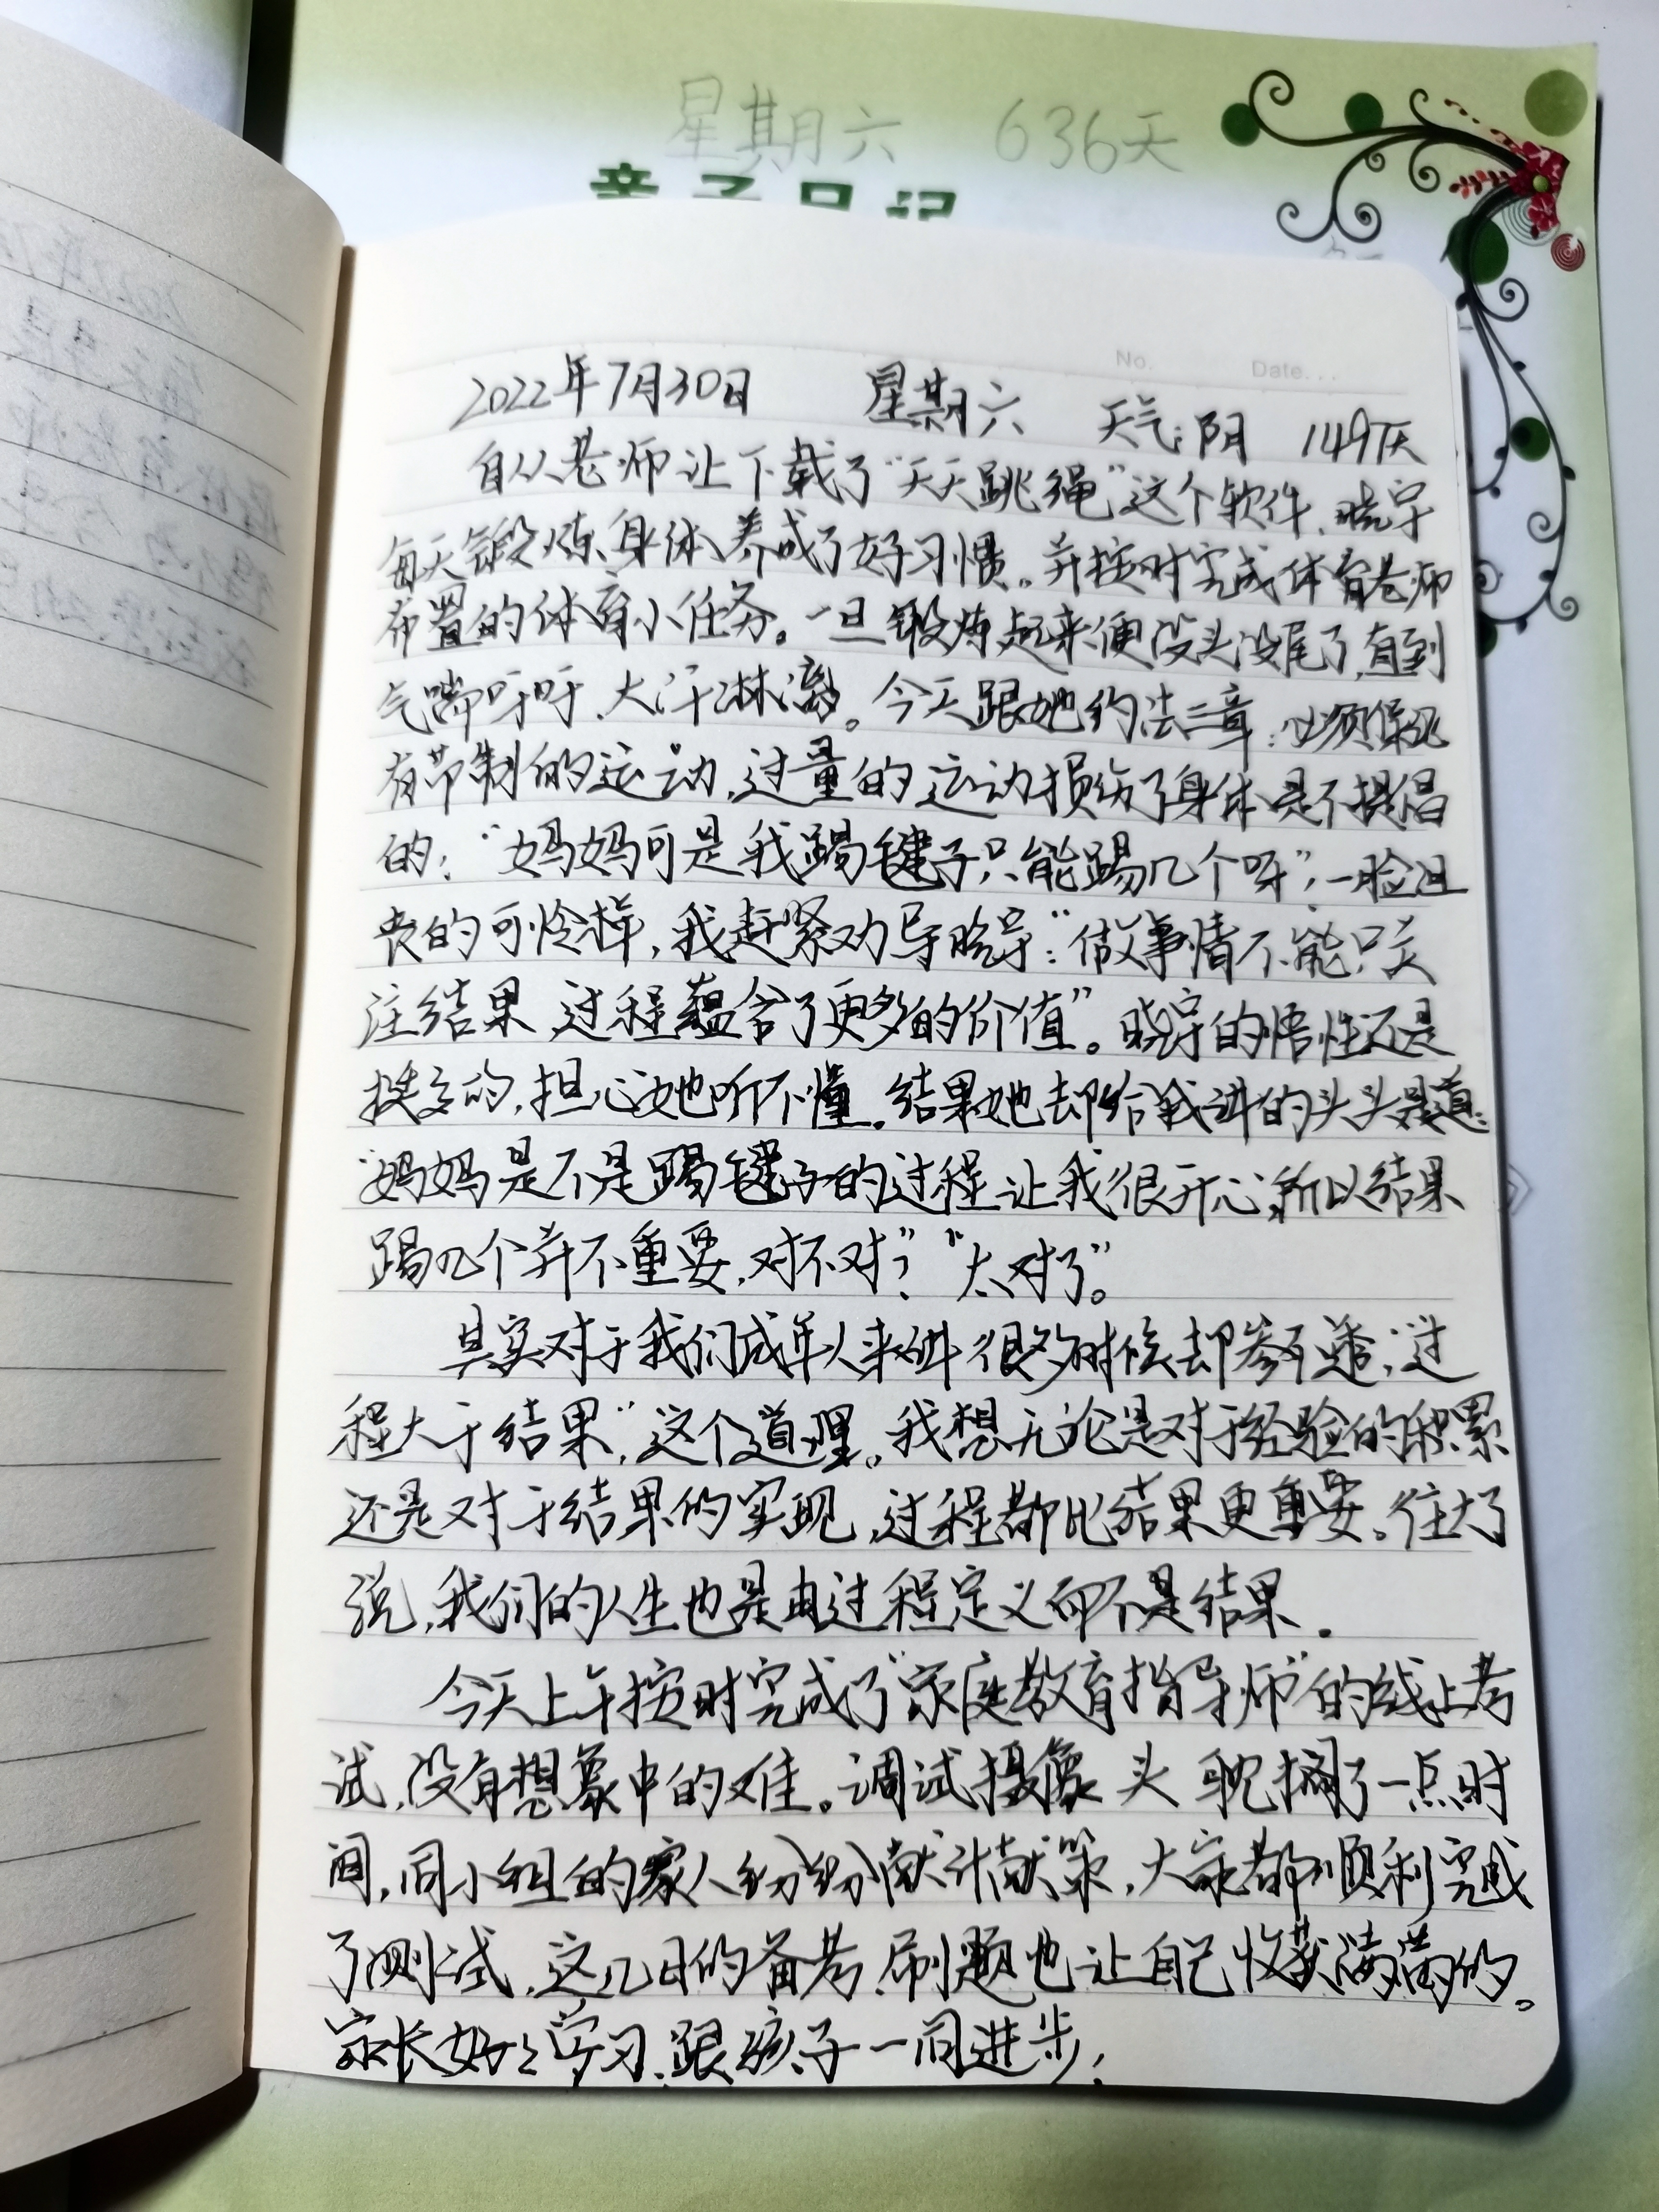 星期六 636天
亲子日记
No. Date...
2022年7月30日 星期六 天气:阴 149天
自从老师让下载了“天天跳绳”这个软件,晓宇
每天锻炼身体养成了好习惯。并按时完成体育老师
布置的体育小任务。一旦锻炼起来便没头没尾了,直到
气喘吁吁、大汗淋漓。今天跟她约法三章:必须保证
有节制的运动,过量的运动损伤了身体是不提倡
的;“妈妈可是我踢毽子只能踢几个呀”,一脸沮
丧的可怜样,我赶紧劝导晓宇:“做事情不能只关
注结果,过程蕴含了更多的价值”。晓宇的悟性还是
挺高的,担心她听不懂。结果她却给我讲的头头是道:
“妈妈是不是踢毽子的过程让我很开心,所以结果
踢几个并不重要,对不对”?“太对了”。
其实对于我们成年人来讲很多时候却参不透,“过
程大于结果”,这个道理。我想无论是对于经验的积累
还是对于结果的实现,过程都比结果更重要。往大了
说,我们的人生也是由过程定义而不是结果.
今天上午按时完成了“家庭教育指导师”的线上考
试,没有想象中的难。调试摄像头耽搁了一点时
间,同小组的家人纷纷献计献策,大家都顺利完成
了测试,这几日的备考、刷题也让自己收获满满的。
家长好好学习,跟孩子一同进步;